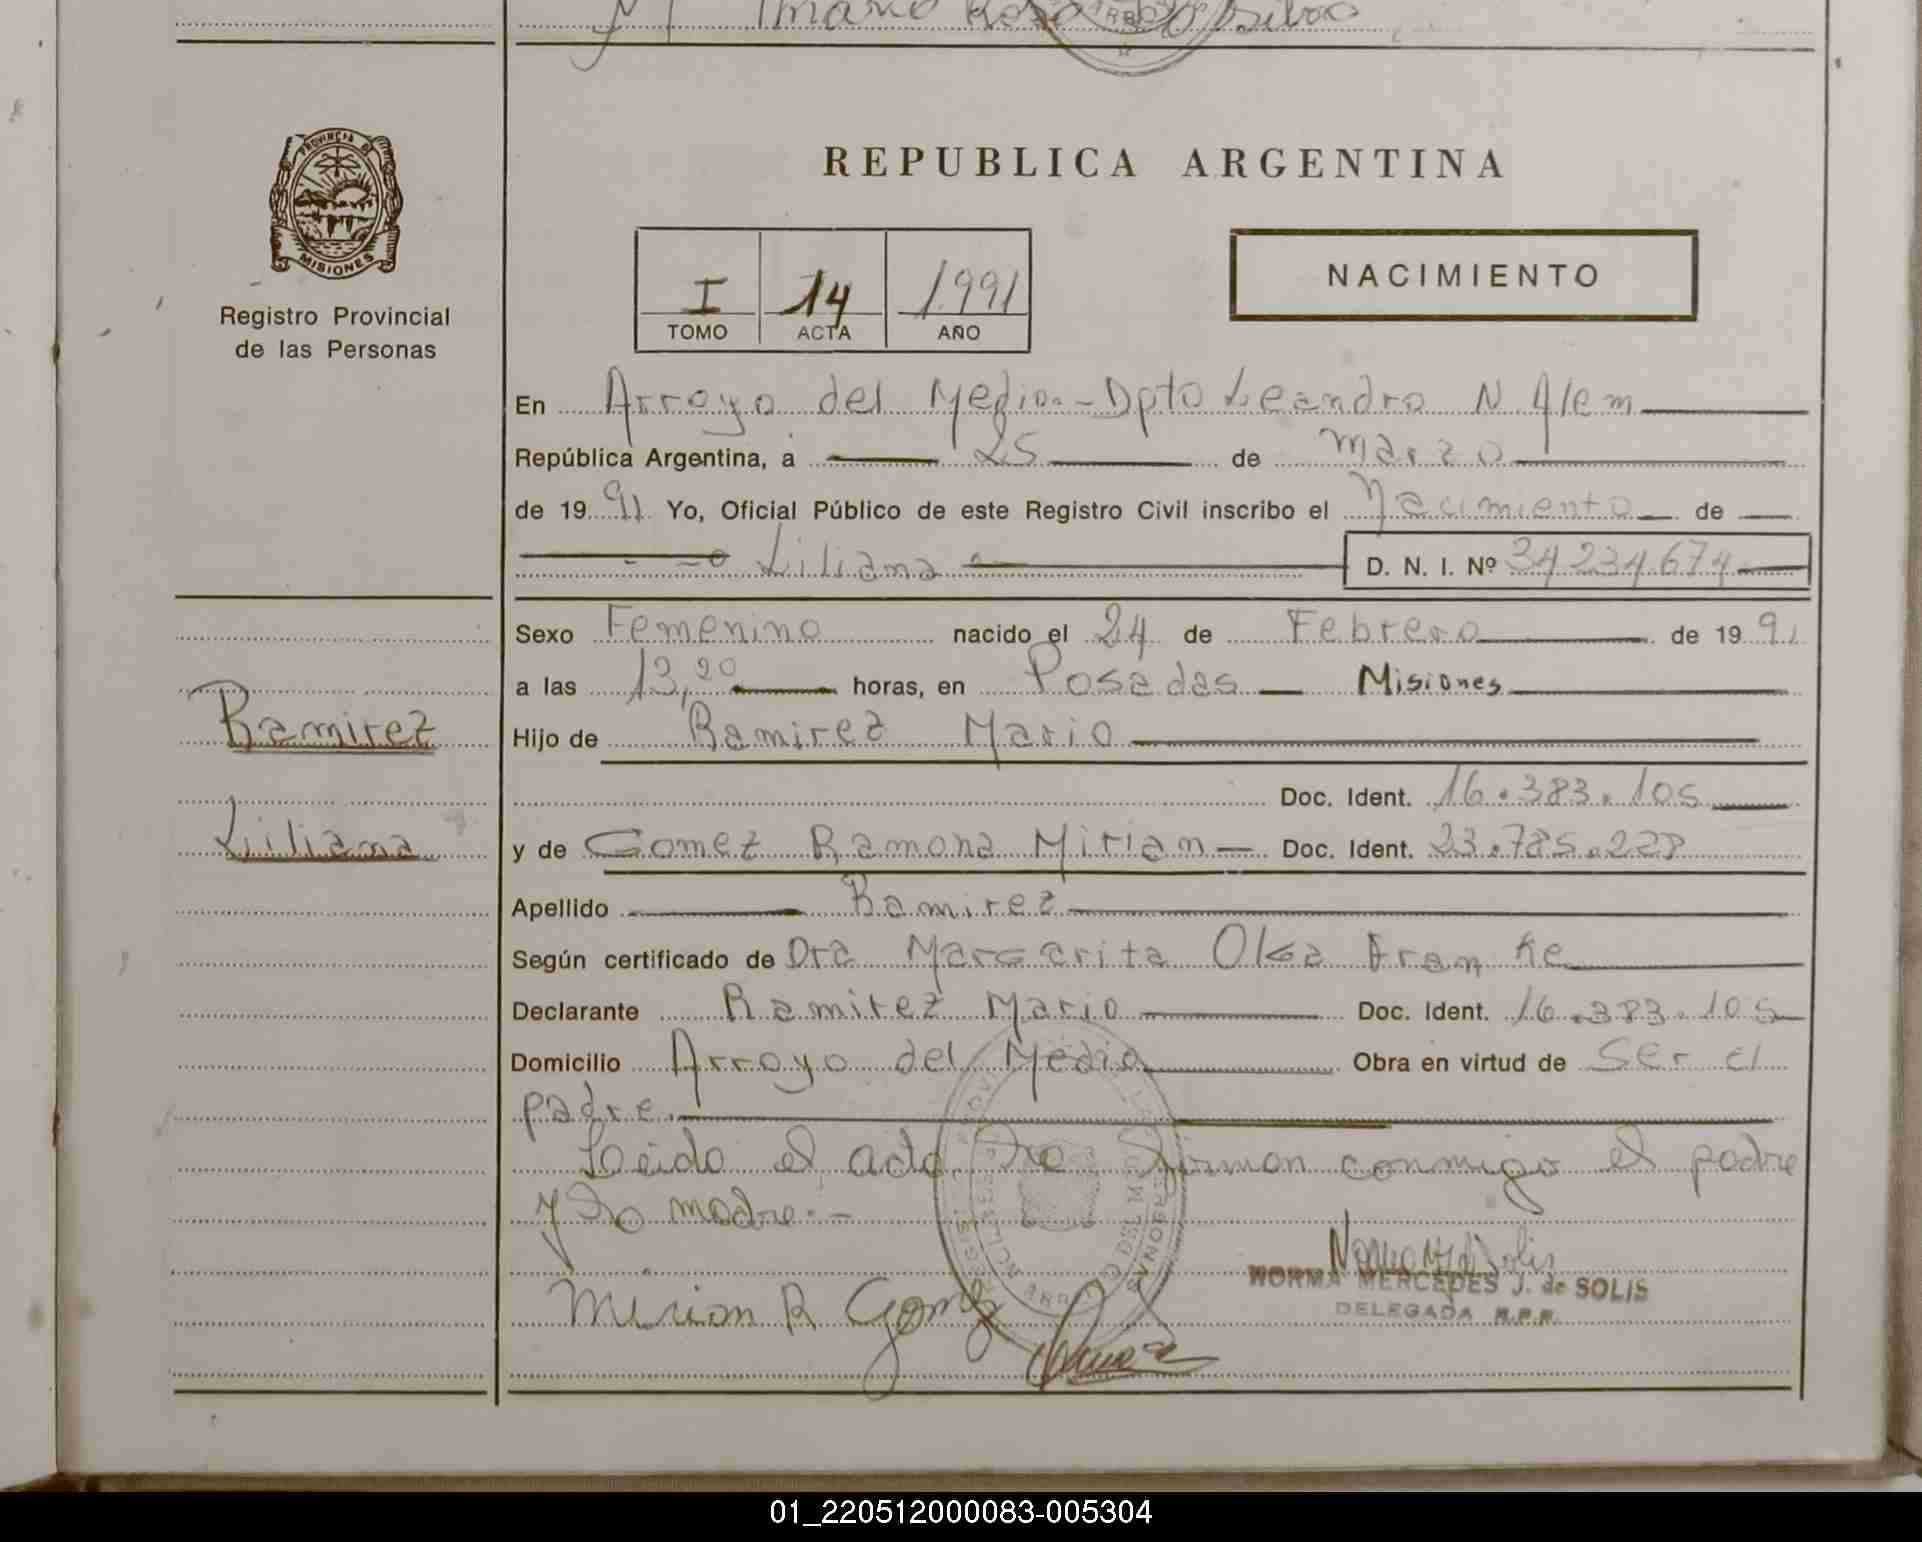 REPUBLICA ARGENTINA
PROVINCIA DE
MISIONES
Registro Provincial
de las Personas
I 14 1991
TOMO ACTA AÑO
NACIMIENTO
En Arroyo del Medio.-Dpto Leandro N. Alem
República Argentina, a 25 de Marzo
de 1991 Yo, Oficial Público de este Registro Civil inscribo el Nacimiento de
Liliana D. N. I. Nº 34234674
Sexo Femenino nacido el 24 de Febrero de 1991
a las 13,20 horas, en Posadas Misiones
Ramirez
Hijo de Ramirez Mario
Doc. Ident. 16.383.105
Liliana
y de Gomez Ramona Mirian Doc. Ident. 23.785.228
Apellido Ramirez
Según certificado de Dra Margarita Olga Franke
Declarante Ramirez Mario Doc. Ident. 16.383.105
Domicilio Arroyo del Medio Obra en virtud de Ser el
padre.
Leido el acta, firman conmigo el padre
y la madre.-
NORMA MERCEDES J. de SOLIS
DELEGADA R.P.P.
Mirian R Gomez
01_220512000083-005304